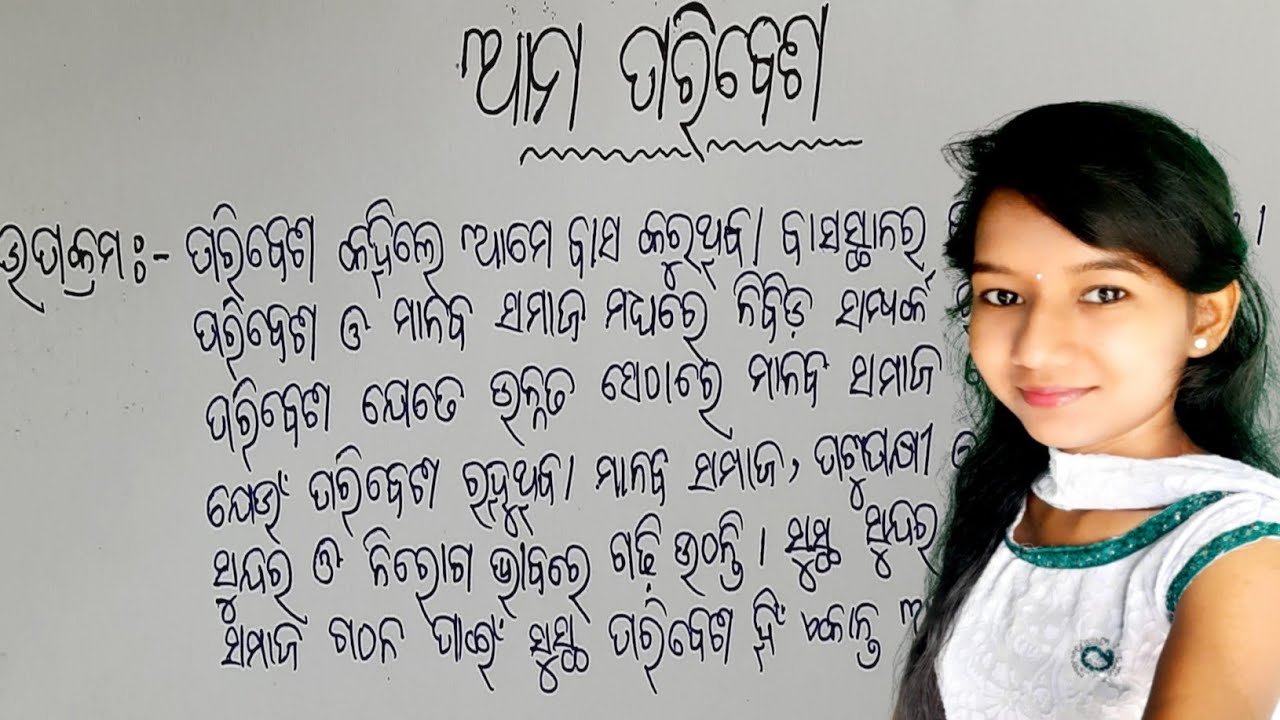 ଆମ ପରିବେଶ
ଉପକ୍ରମ :- ପରିବେଶ କହିଲେ ଆମେ ବାସ କରୁଥିବା ବାସସ୍ଥାନର
ପରିବେଶ ଓ ମାନବ ସମାଜ ମଧ୍ୟରେ ନିବିଡ଼ ସମ୍ପର୍କ
ପରିବେଶ ଯେତେ ଉନ୍ନତ ସେଠାରେ ମାନବ ସମାଜ
ଯେଉଁ ପରିବେଶ ରହୁଥିବା ମାନବ ସମାଜ, ପଶୁପକ୍ଷୀ
ସୁନ୍ଦର ଓ ନିରୋଗ ଭାବରେ ଗଢ଼ି ଉଠନ୍ତି । ସୁସ୍ଥ ସୁନ୍ଦର
ସମାଜ ଗଠନ ପାଇଁ ସୁସ୍ଥ ପରିବେଶ ହିଁ ଏକାନ୍ତ